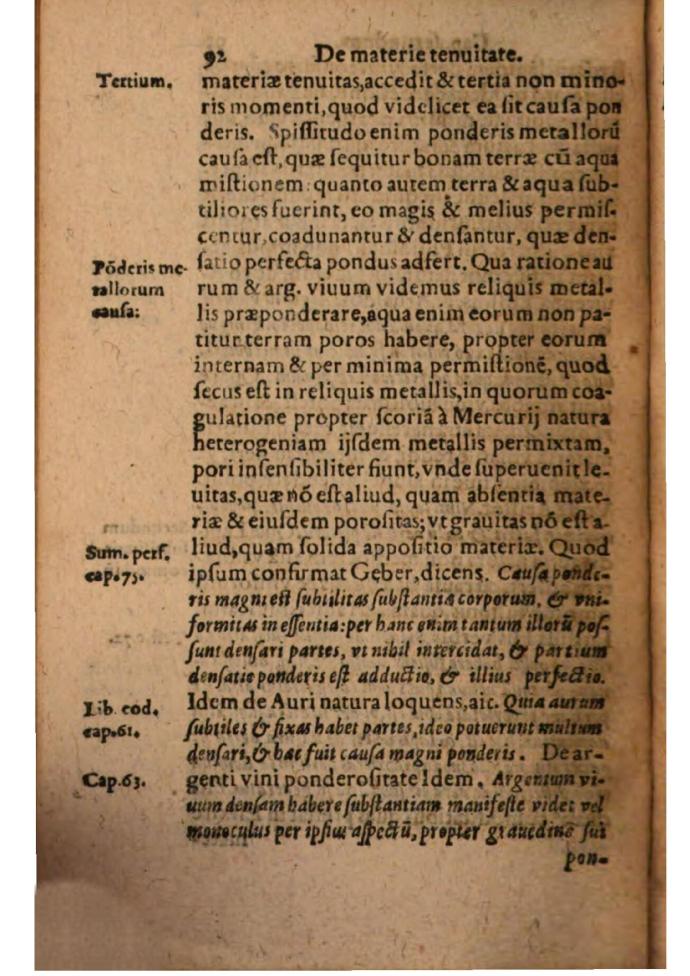 92 De materie tenuitate.
Tertium. materiæ tenuitas,accedit & tertia non mino-
ris momenti,quod videlicet ea ſit cauſa pon
deris. Spiſſitudo enim ponderis metallorū
cauſa eſt,quæ ſequitur bonam terræ cū aqua
miſtionem: quanto autem terra & aqua ſub-
tiliores fuerint, eo magis & melius permiſ-
centur,coadunantur & denſantur, quæ den-
Pōderis me- ſatio perfecta pondus adfert. Qua ratione au
tallorum rum & arg. viuum videmus reliquis metal-
cauſa: lis præponderare,aqua enim eorum non pa-
titur terram poros habere, propter eorum
internam & per minima permiſtionē, quod
ſecus eſt in reliquis metallis,in quorum coa-
gulatione propter ſcoriā à Mercurij natura
heterogeniam ijſdem metallis permixtam,
pori inſenſibiliter fiunt,vnde ſuperuenit le-
uitas,quæ nō eſt aliud, quam abſentia mate-
riæ & eiuſdem poroſitas; vt grauitas nō eſt a-
Sum. perf. liud,quam ſolida appoſitio materiæ. Quod
cap.75. ipſum confirmat Geber,dicens. Cauſa ponde-
ris magni eſt ſubtilitas ſubſtantiæ corporum, & vni-
formitas in eſſentia:per hanc enim tantum illorū poſ-
ſunt denſari partes, vt nihil intercidat, & partium
denſatio ponderis eſt adductio, & illius perfectio.
Lib. eod. Idem de Auri natura loquens,aic. Quia aurum
cap.61. ſubtiles & fixas habet partes,ideo potuerunt multum
denſari,& hæc fuit cauſa magni ponderis. De ar-
Cap.63. genti vini ponderoſitate Idem. Argentum vi-
uum denſam habere ſubſtantiam manifeſte videt vel
monoculus per ipſius aſpectū, propter grauedinē ſui
pon-